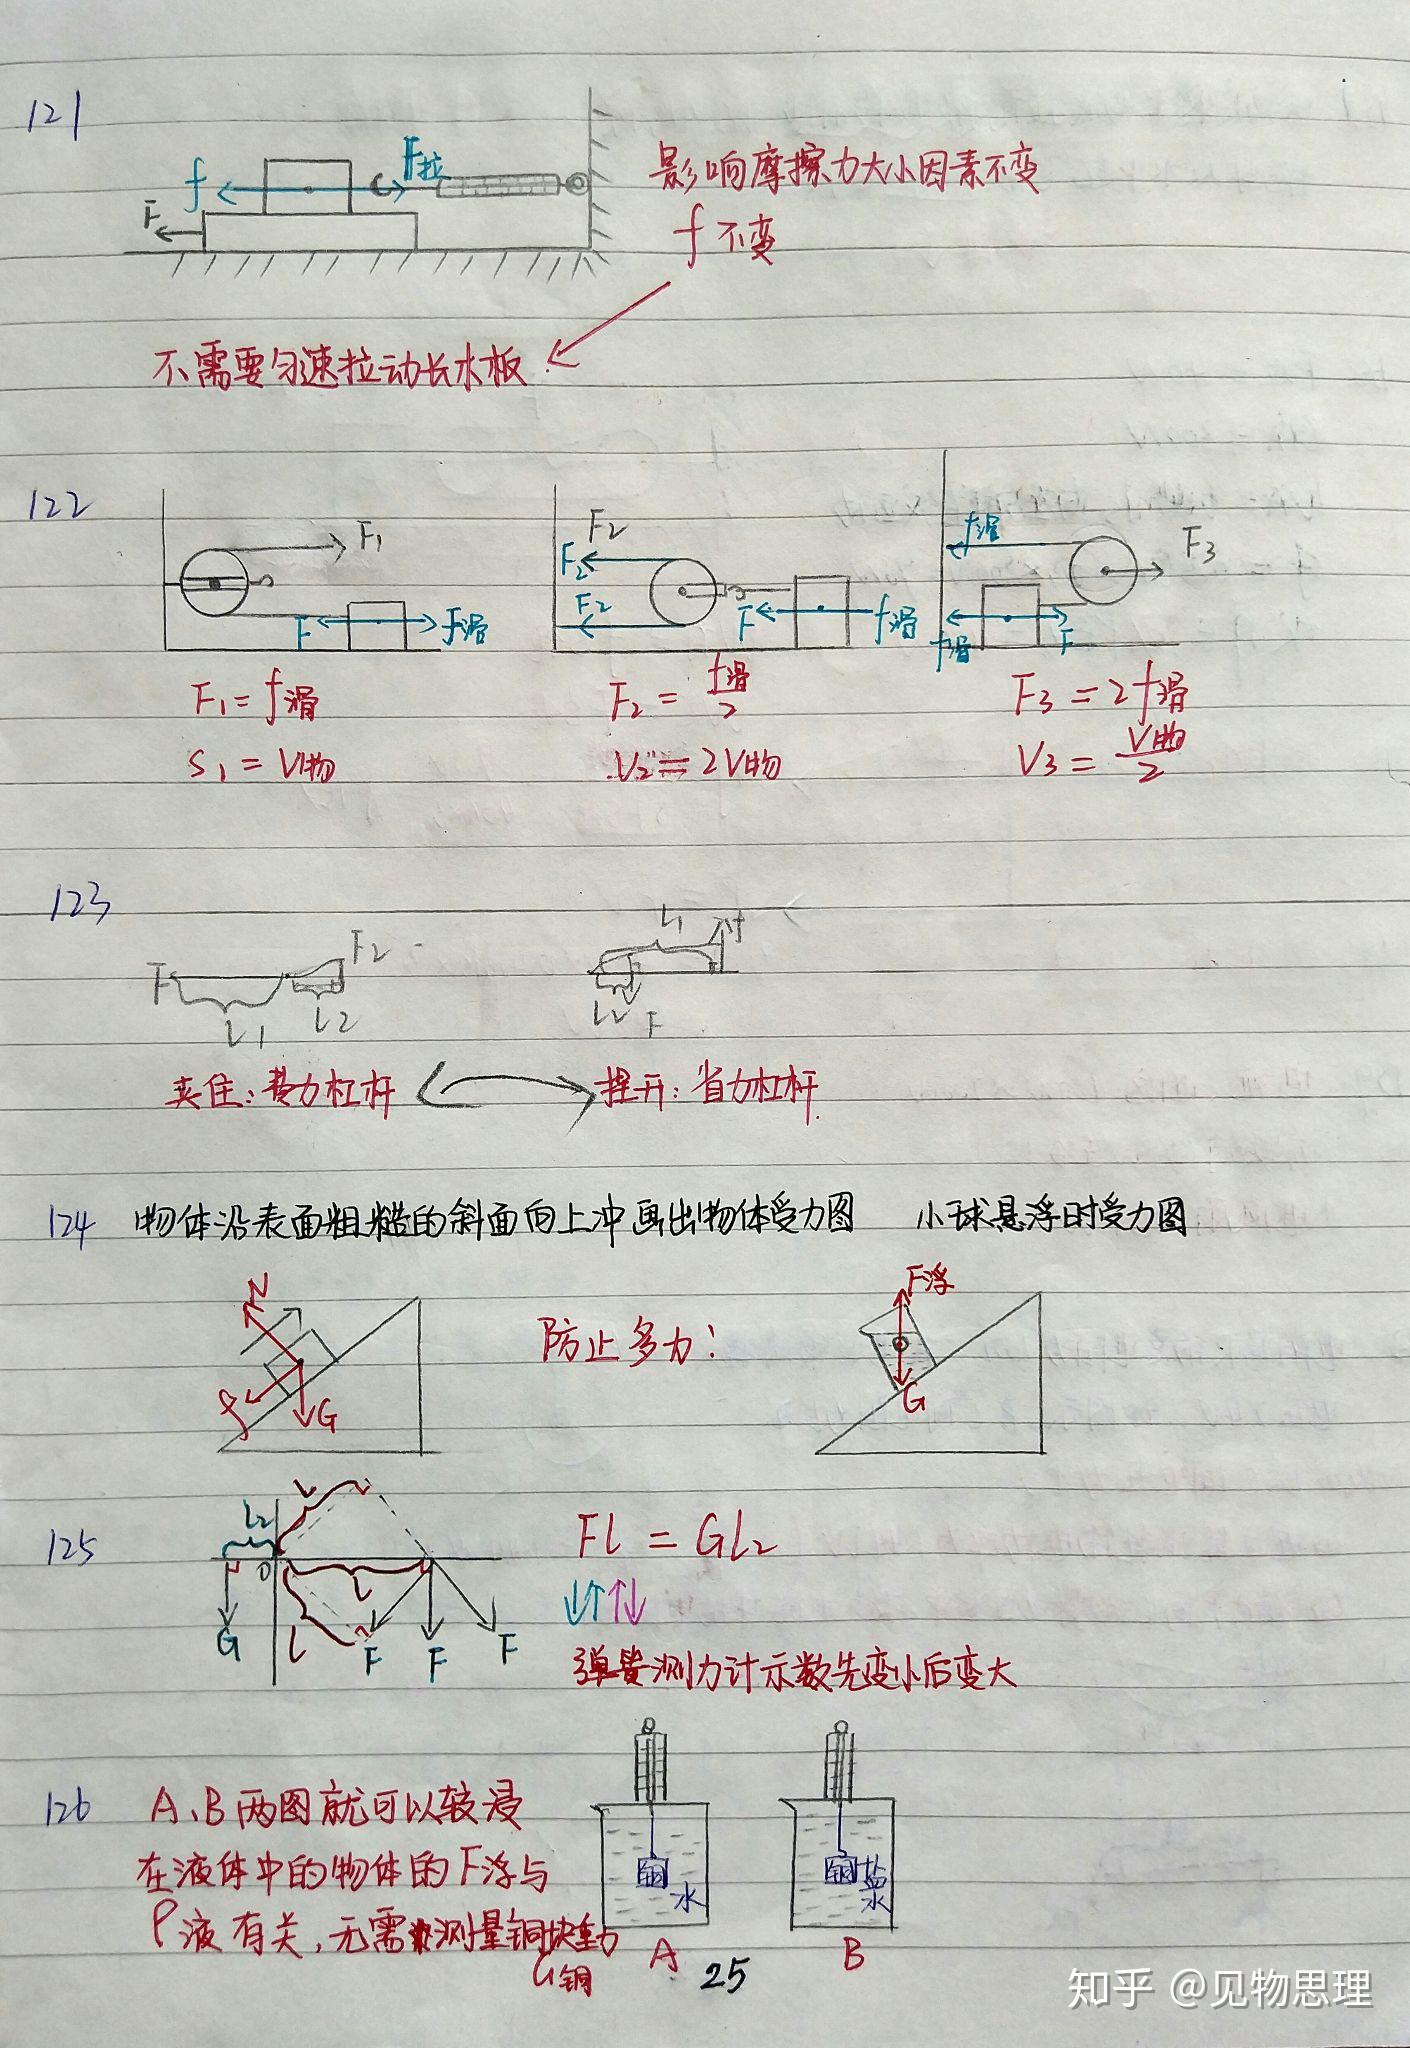 121
f F拉 影响摩擦力大小因素不变
F f 不变
不需要匀速拉动长木板
122
F1 F2 f滑 F3
F2
F f滑 F2 F f滑 f滑 F
F1 = f滑 F2 = f滑/2 F3 = 2f滑
S1 = V物 V2 = 2V物 V3 = V物/2
123
F F2 L1 f
L1 L2 L2 F
夹住：费力杠杆 提开：省力杠杆
124 物体沿表面粗糙的斜面向上冲画出物体受力图 小球悬浮时受力图
N 防止多力： F浮
f G G
125 L2 L FL = GL2
O L
G L F F F ↓↑↑↓
弹簧测力计示数先变小后变大
126 A、B两图就可以较浸
在液体中的物体的F浮与 铜 水 铜 盐水
ρ液有关，无需测量铜块重力
G铜 A B
25
知乎 @见物思理